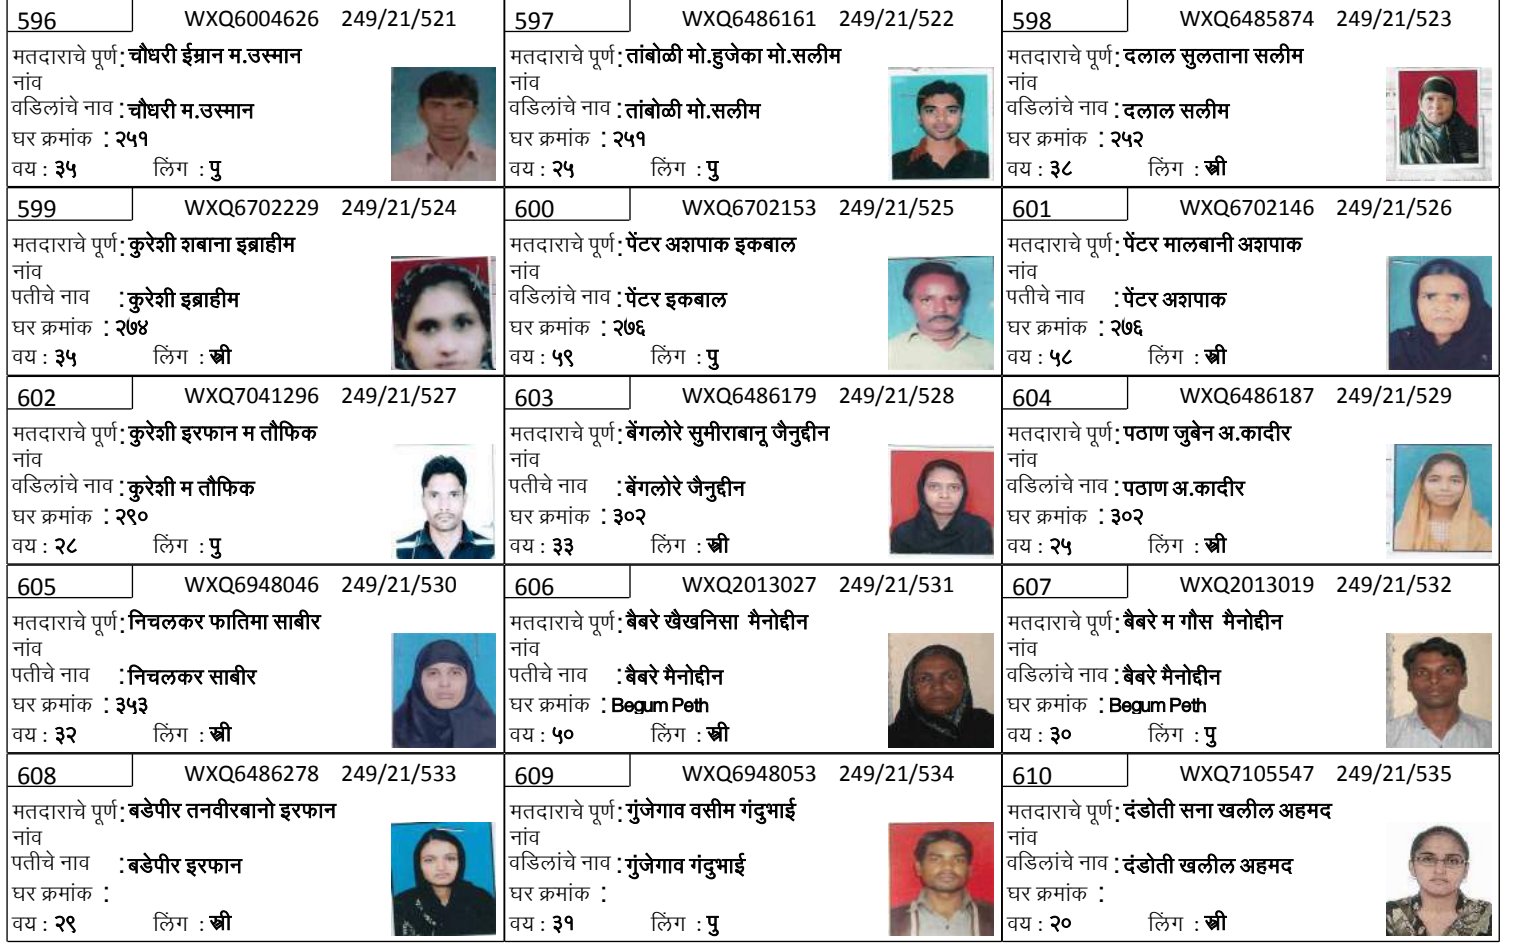 596 WXQ6004626 249/21/521
मतदाराचे पूर्ण : चौधरी ईम्रान म.उस्मान
नांव
वडिलांचे नाव : चौधरी म.उस्मान
घर क्रमांक : २५१
वय : ३५ लिंग : पु
597 WXQ6486161 249/21/522
मतदाराचे पूर्ण : तांबोळी मो.हुजेका मो.सलीम
नांव
वडिलांचे नाव : तांबोळी मो.सलीम
घर क्रमांक : २५१
वय : २५ लिंग : पु
598 WXQ6485874 249/21/523
मतदाराचे पूर्ण : दलाल सुलताना सलीम
नांव
वडिलांचे नाव : दलाल सलीम
घर क्रमांक : २५२
वय : ३८ लिंग : स्त्री
599 WXQ6702229 249/21/524
मतदाराचे पूर्ण : कुरेशी शबाना इब्राहीम
नांव
पतीचे नाव : कुरेशी इब्राहीम
घर क्रमांक : २७४
वय : ३५ लिंग : स्त्री
600 WXQ6702153 249/21/525
मतदाराचे पूर्ण : पेंटर अशपाक इकबाल
नांव
वडिलांचे नाव : पेंटर इकबाल
घर क्रमांक : २७६
वय : ५९ लिंग : पु
601 WXQ6702146 249/21/526
मतदाराचे पूर्ण : पेंटर मालबानी अशपाक
नांव
पतीचे नाव : पेंटर अशपाक
घर क्रमांक : २७६
वय : ५८ लिंग : स्त्री
602 WXQ7041296 249/21/527
मतदाराचे पूर्ण : कुरेशी इरफान म तौफिक
नांव
वडिलांचे नाव : कुरेशी म तौफिक
घर क्रमांक : २९०
वय : २८ लिंग : पु
603 WXQ6486179 249/21/528
मतदाराचे पूर्ण : बेंगलोरे सुमीराबानू जैनुद्दीन
नांव
पतीचे नाव : बेंगलोरे जैनुद्दीन
घर क्रमांक : ३०२
वय : ३३ लिंग : स्त्री
604 WXQ6486187 249/21/529
मतदाराचे पूर्ण : पठाण जुबेन अ.कादीर
नांव
वडिलांचे नाव : पठाण अ.कादीर
घर क्रमांक : ३०२
वय : २५ लिंग : स्त्री
605 WXQ6948046 249/21/530
मतदाराचे पूर्ण : निचलकर फातिमा साबीर
नांव
पतीचे नाव : निचलकर साबीर
घर क्रमांक : ३५३
वय : ३२ लिंग : स्त्री
606 WXQ2013027 249/21/531
मतदाराचे पूर्ण : बैबरे खैखनिसा मैनोद्दीन
नांव
पतीचे नाव : बैबरे मैनोद्दीन
घर क्रमांक : Begum Peth
वय : ५० लिंग : स्त्री
607 WXQ2013019 249/21/532
मतदाराचे पूर्ण : बैबरे म गौस मैनोद्दीन
नांव
वडिलांचे नाव : बैबरे मैनोद्दीन
घर क्रमांक : Begum Peth
वय : ३० लिंग : पु
608 WXQ6486278 249/21/533
मतदाराचे पूर्ण : बडेपीर तनवीरबानो इरफान
नांव
पतीचे नाव : बडेपीर इरफान
घर क्रमांक :
वय : २९ लिंग : स्त्री
609 WXQ6948053 249/21/534
मतदाराचे पूर्ण : गुंजेगाव वसीम गंदुभाई
नांव
वडिलांचे नाव : गुंजेगाव गंदुभाई
घर क्रमांक :
वय : ३१ लिंग : पु
610 WXQ7105547 249/21/535
मतदाराचे पूर्ण : दंडोती सना खलील अहमद
नांव
वडिलांचे नाव : दंडोती खलील अहमद
घर क्रमांक :
वय : २० लिंग : स्त्री